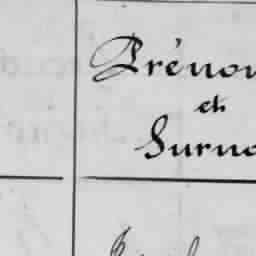 Préno
et
Surno